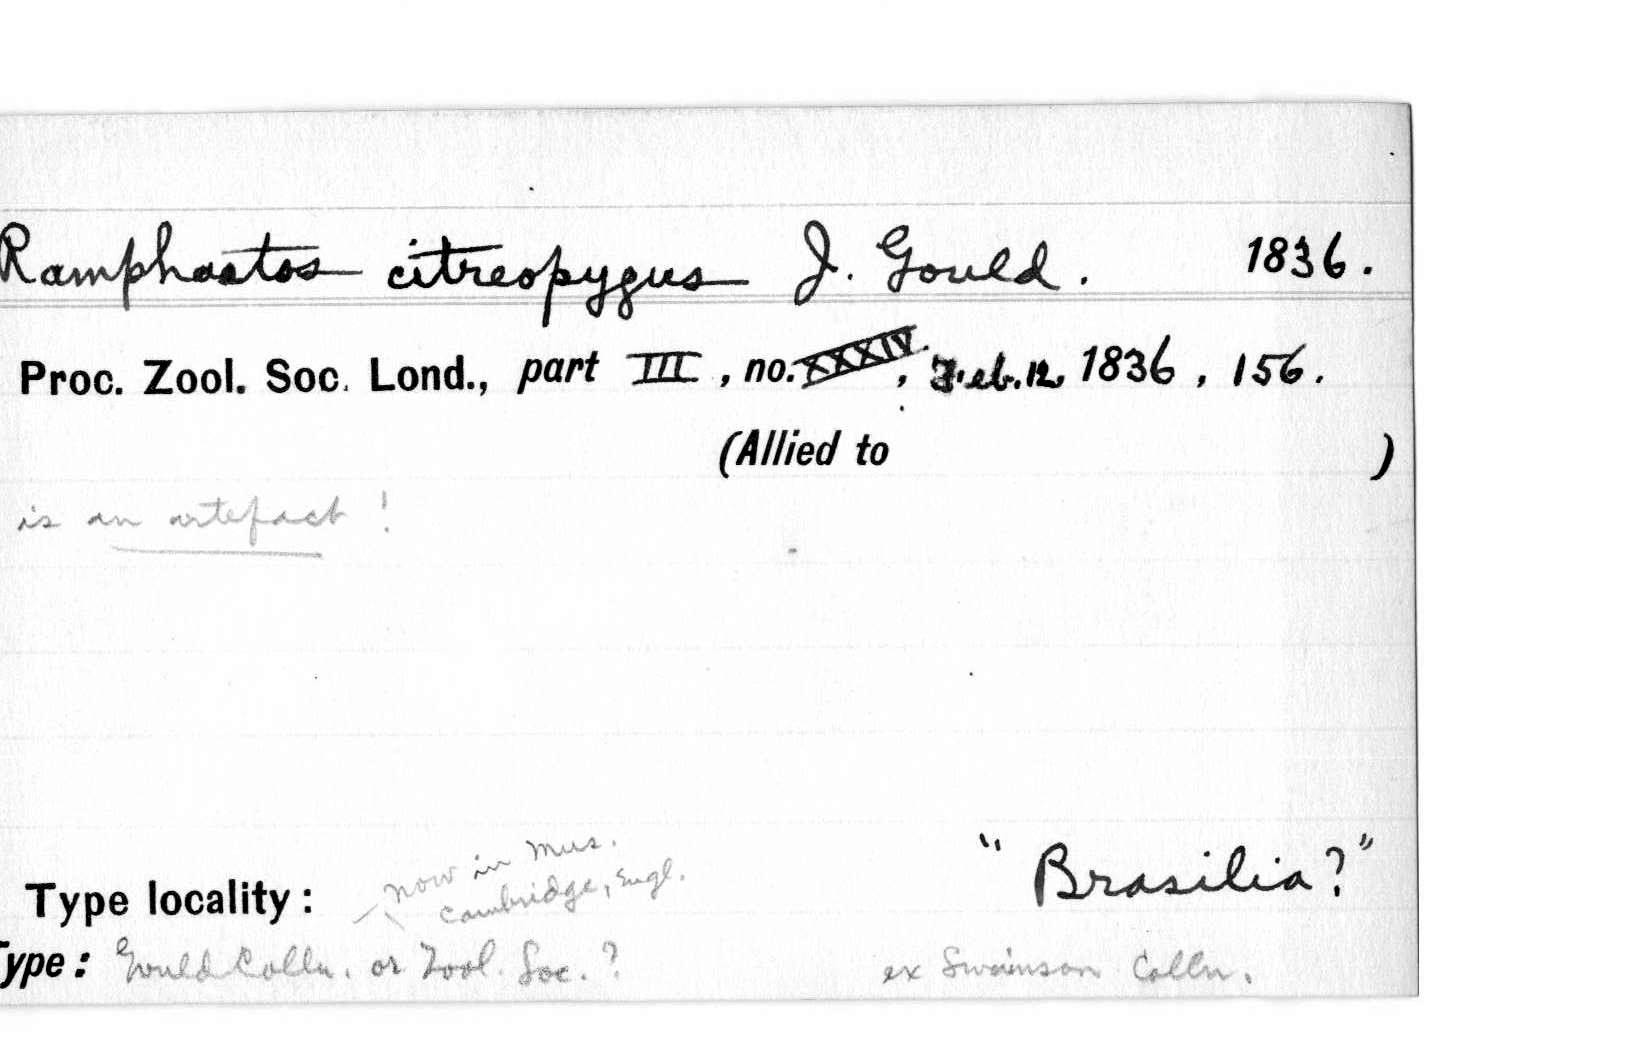 Ramphastos citreopygus J. Gould. 1836.
Proc. Zool. Soc. Lond., part III, no. XXXIV, Feb. 12, 1836, 156.
(Allied to )
is an artefact!
now in Mus.
Cambridge, Engl.
"Brasilia?"
Type locality:
Type: Gould Colln. or Zool. Soc.? ex Swainson Colln.